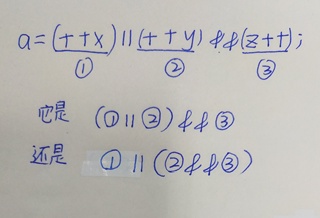 a=(++x)||(++y)&&(z++);
① ② ③
它是 (①||②)&&③
还是 ①||(②&&③)